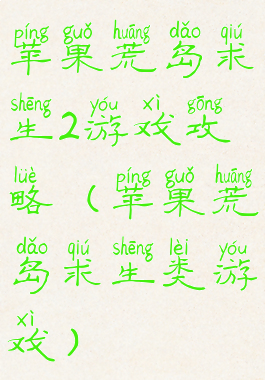 píng guǒ huāng dǎo qiú
苹果荒岛求
shēng yóu xì gōng
生2游戏攻
lüè píng guǒ huāng
略（苹果荒
dǎo qiú shēng lèi yóu
岛求生类游
xì
戏）